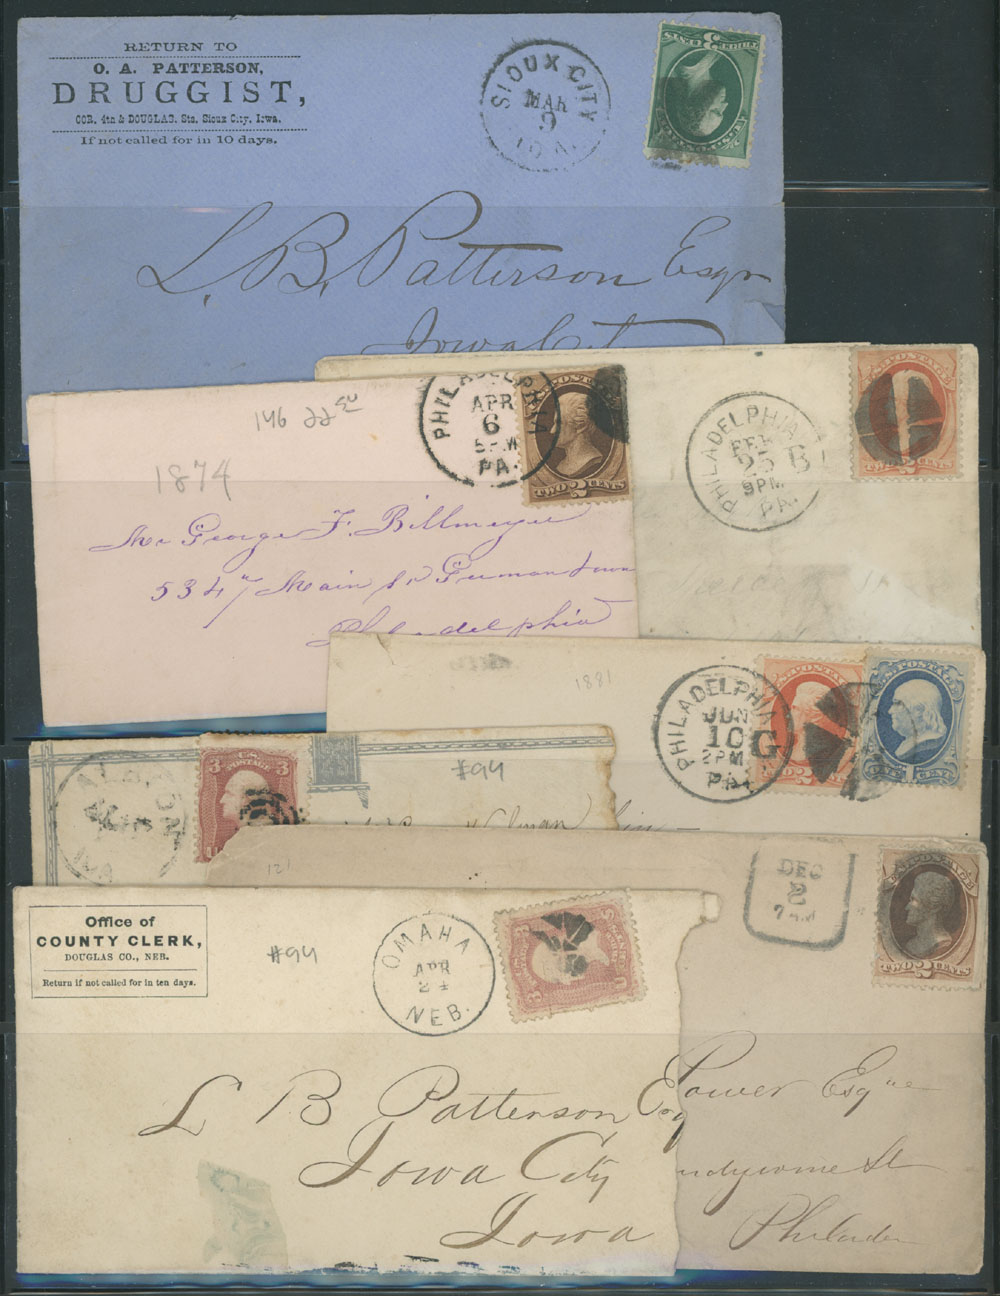 RETURN TO
O. A. PATTERSON,
DRUGGIST,
COR. 4th & DOUGLAS. Sts. Sioux City. Iowa.
If not called for in 10 days.
SIOUX CITY
MAR
9
IOA.
L. B. Patterson Esqr
Iowa City
146 22 50
1874
PHILADELPHIA
APR
6
5PM
PA.
TWO 2 CENTS
Mr George F. Billmeyer
5347 Main St Germantown
Philadelphia
U.S. POSTAGE
PHILADELPHIA
FEB
25 B
9PM
PA.
1881
PHILADELPHIA
JUN
10 G
2PM
PA.
U.S. POSTAGE
ONE 1 CENT
#94
3 U.S. 3
POSTAGE
121
DEC
2
7 AM
TWO 2 CENTS
Office of
COUNTY CLERK,
DOUGLAS CO., NEB.
Return if not called for in ten days.
#94
OMAHA
APR
24
NEB.
L B Patterson Esq
Iowa City
Iowa
Power Esqre
ndywine St
Philadel